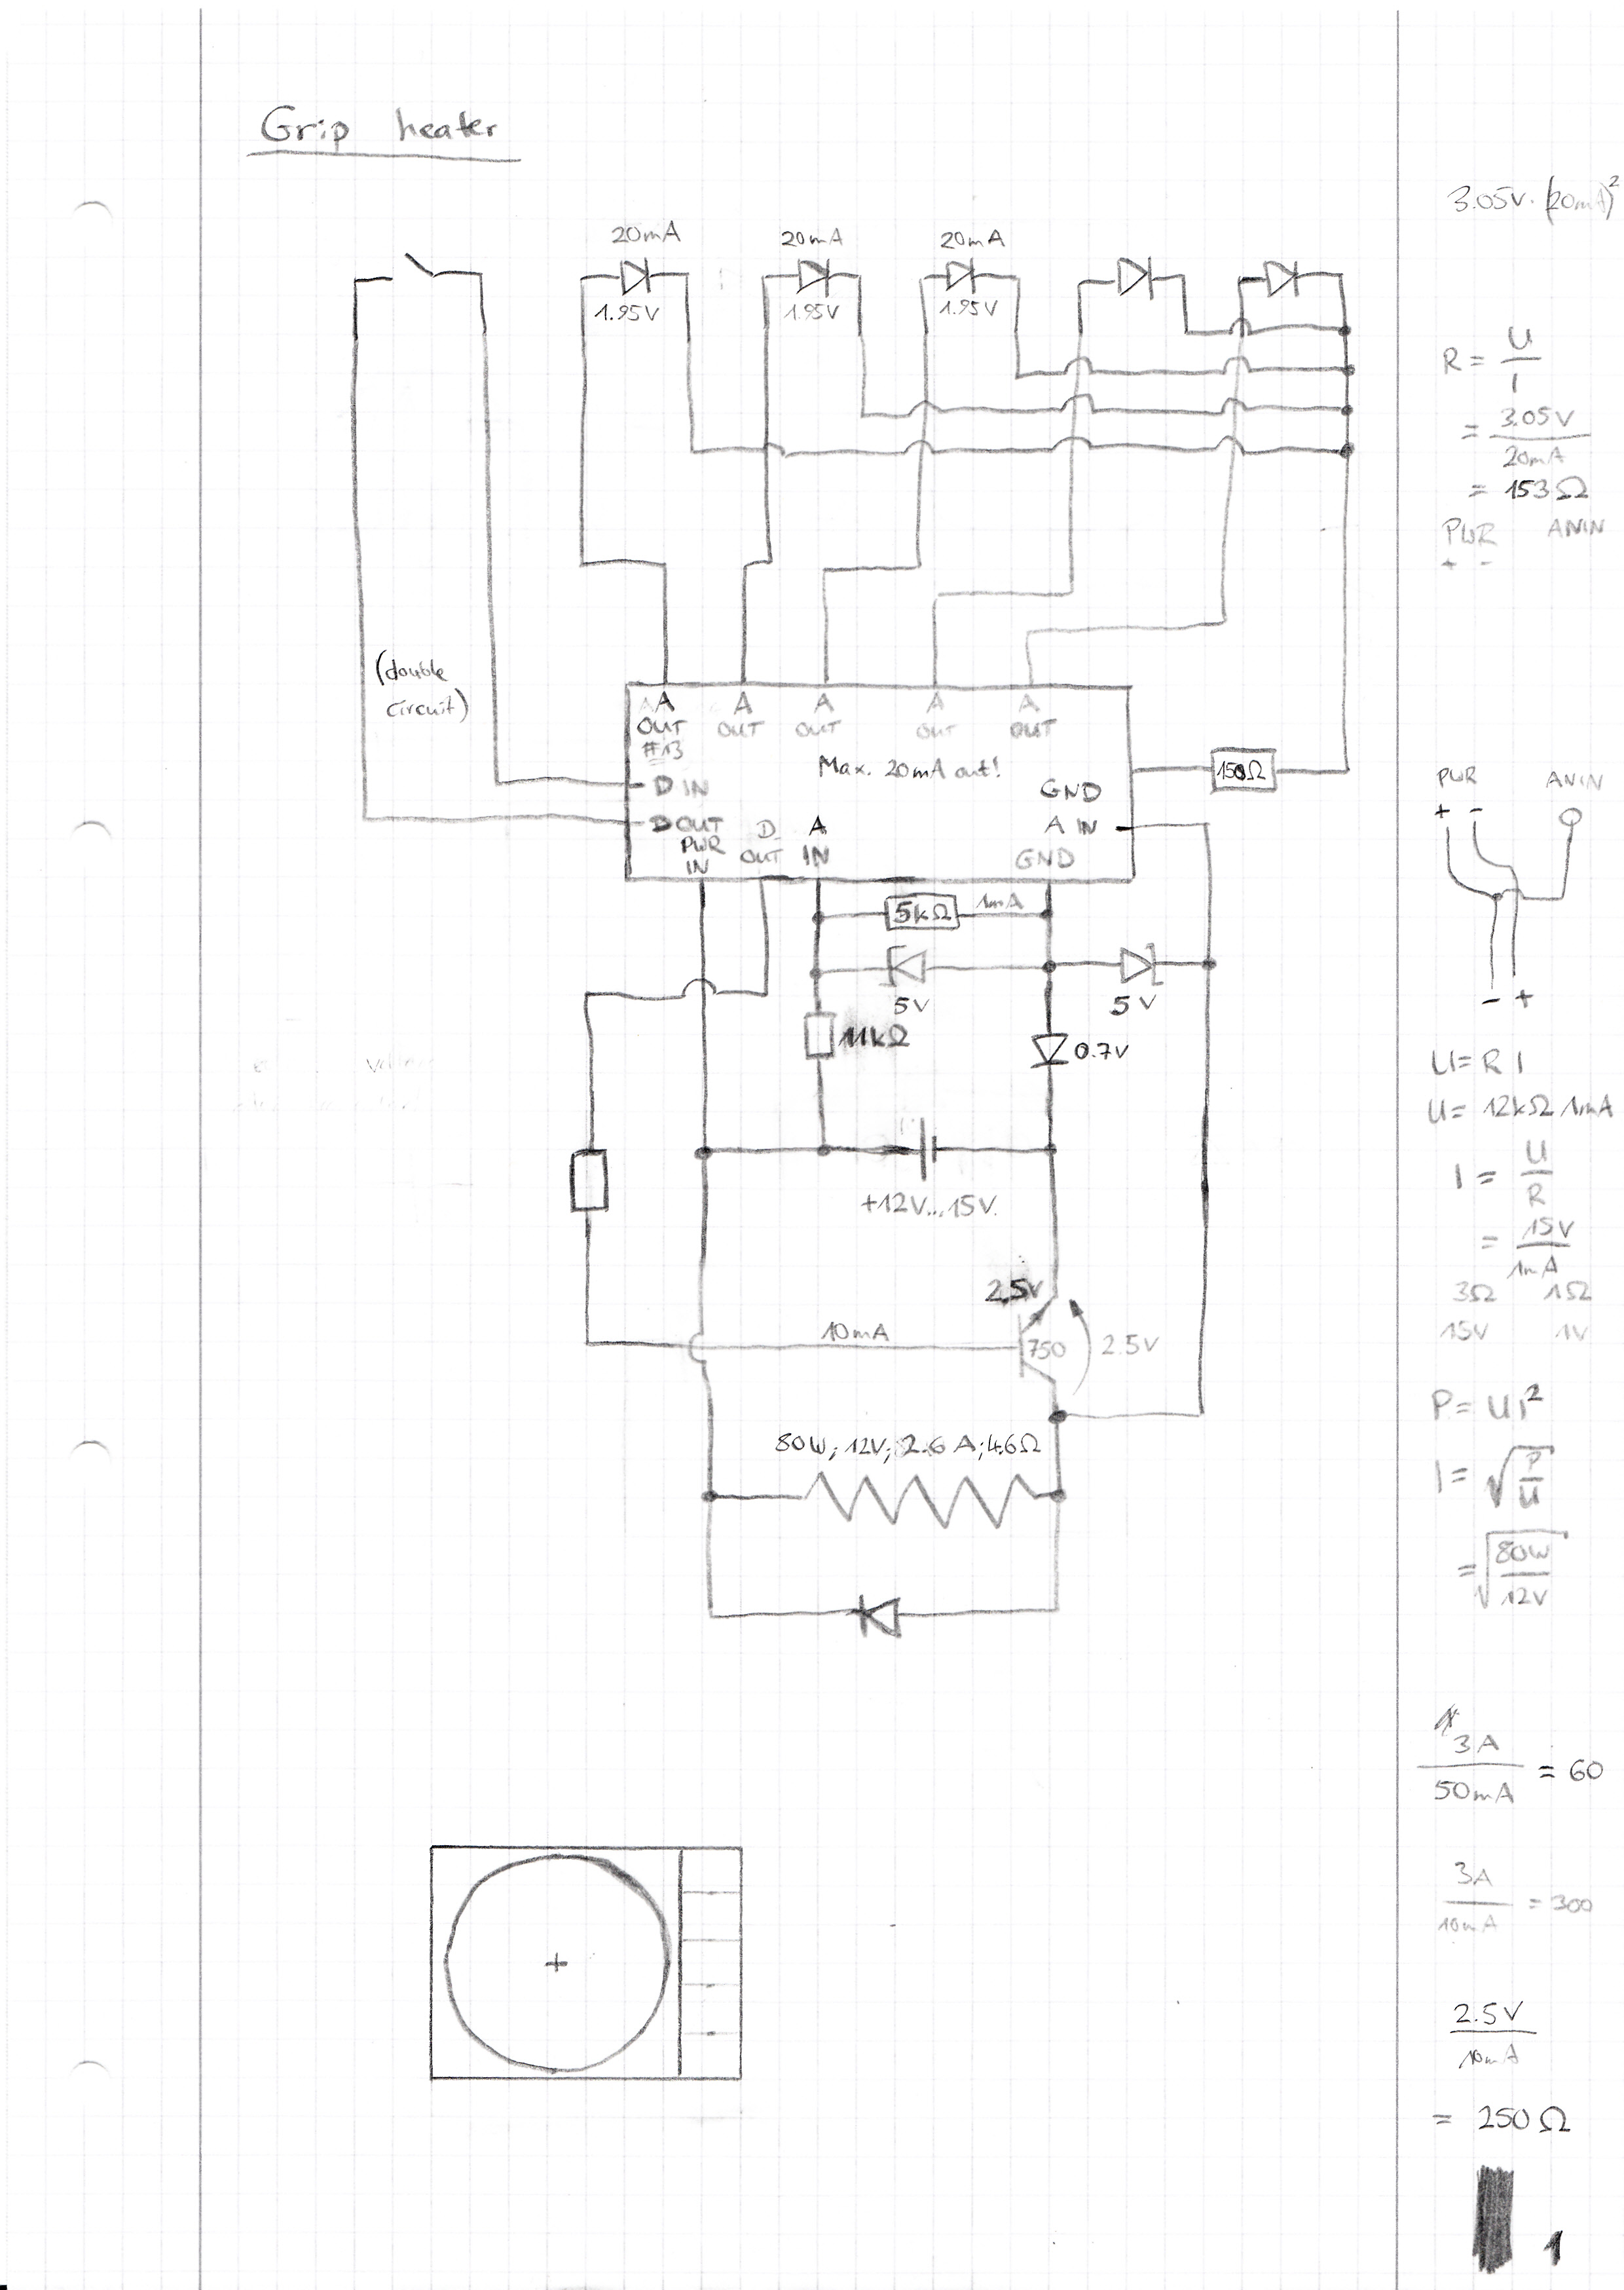 Grip heater
20mA
20mA
20mA
1.95V
1.95V
1.95V
(double
circuit)
A
OUT
#13
A
OUT
A
OUT
A
OUT
A
OUT
Max. 20mA out!
D IN
D OUT
GND
A IN
PWR
IN
D
OUT
A
IN
GND
150Ω
5kΩ
1mA
5V
5V
11kΩ
0.7V
+12V...15V
2.5V
10mA
750
2.5V
80W; 12V; 2.6A; 4.6Ω
3.05V·(20mA)²
R = U
I
= 3.05V
20mA
= 153Ω
PWR ANIN
+ -
PWR ANIN
+ -
- +
U = R I
U = 12kΩ 1mA
I = U
R
= 15V
1mA
3Ω 1Ω
15V 1V
P = U I²
I = √ P
U
= √ 80W
12V
3A
50mA
= 60
3A
10mA
= 300
2.5V
10mA
= 250Ω
1